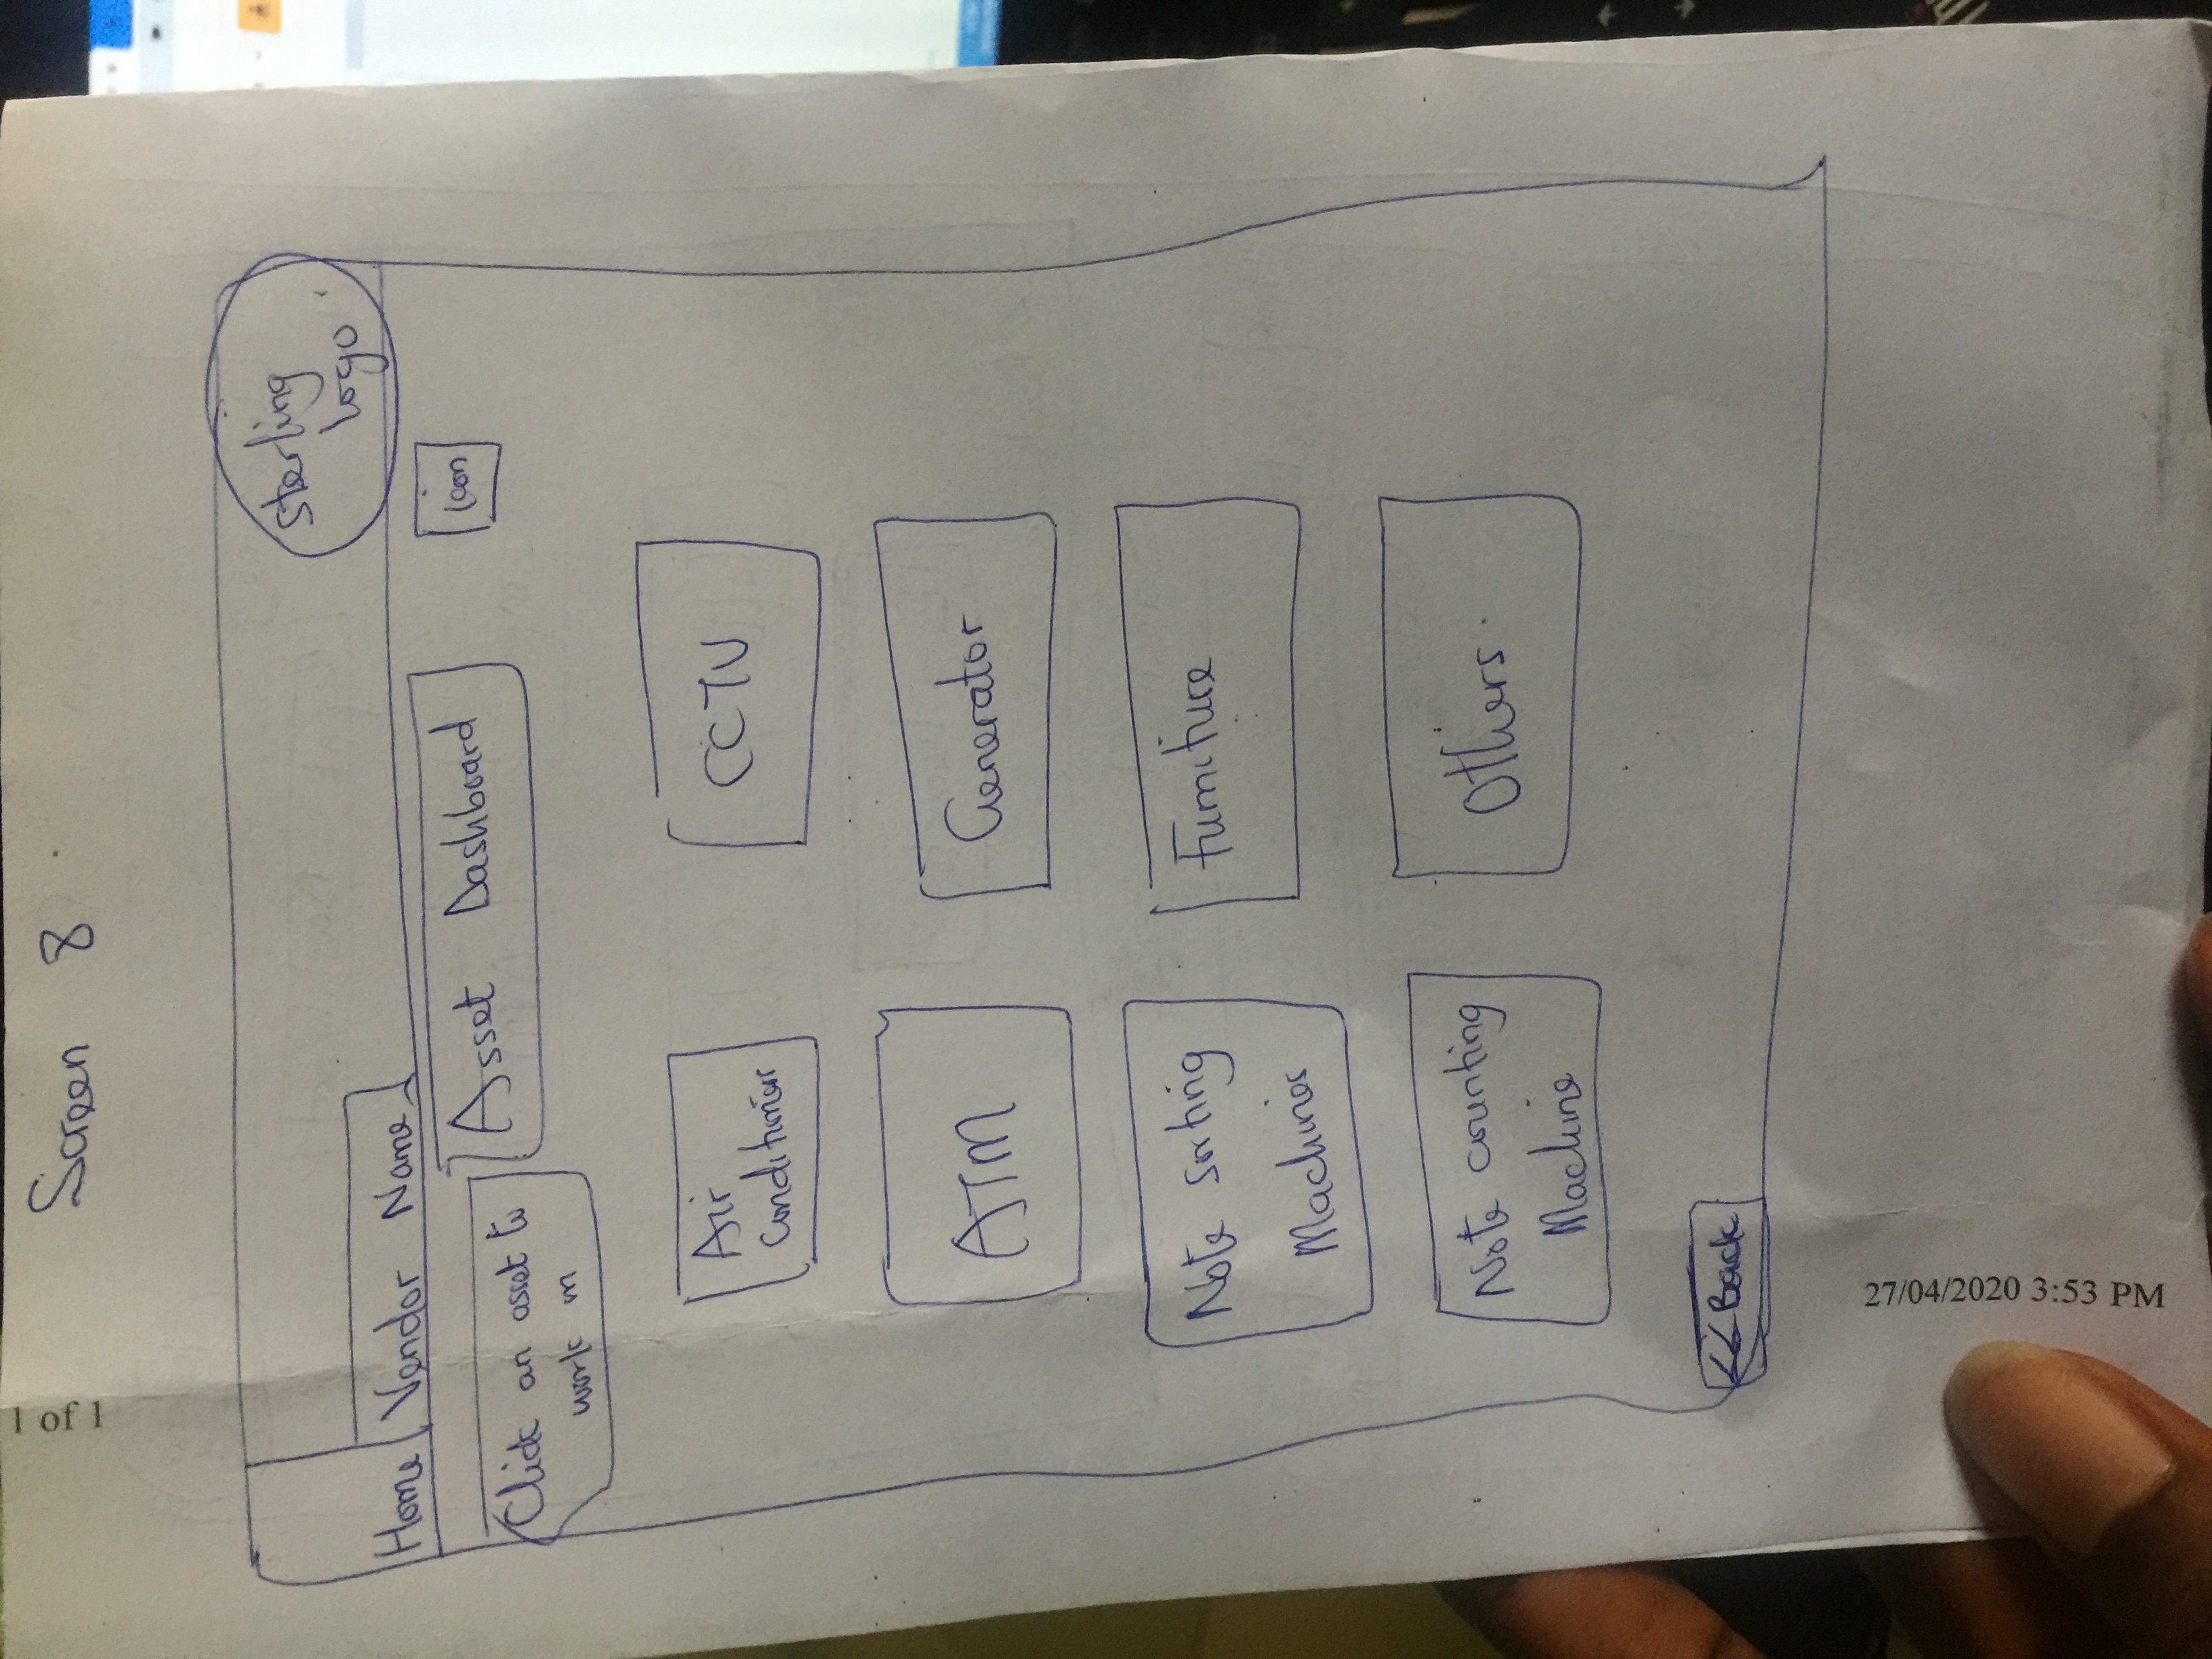 1 of 1
Screen 8
sterling
logo
Home
Vendor Name
Asset Dashboard
Icon
Click an asset to
work on
Air
Conditioner
CCTV
ATM
Generator
Note sorting
Machines
Furniture
Note counting
Machine
Others.
<< Back
27/04/2020 3:53 PM